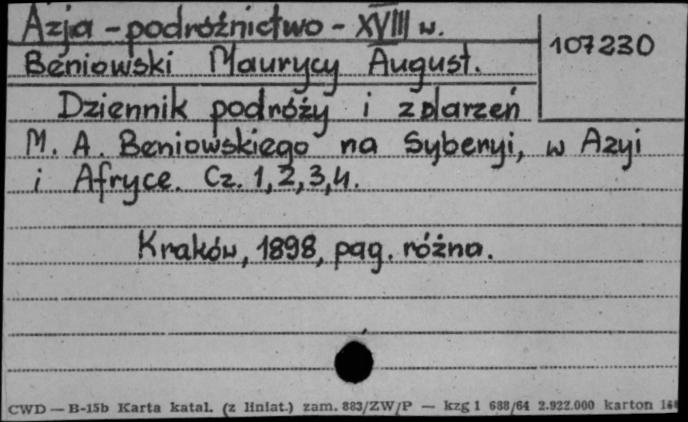 Azja - podróżnictwo - XVIII w.
107230
Beniowski Maurycy August.
Dziennik podróży i zdarzeń
M. A. Beniowskiego na Syberyi, w Azyi
i Afryce. Cz. 1, 2, 3, 4.
Kraków, 1898, pag. różna.
CWD — B-15b Karta katal. (z liniat.) zam. 883/ZW/P — kzg 1 688/64 2.922.000 karton